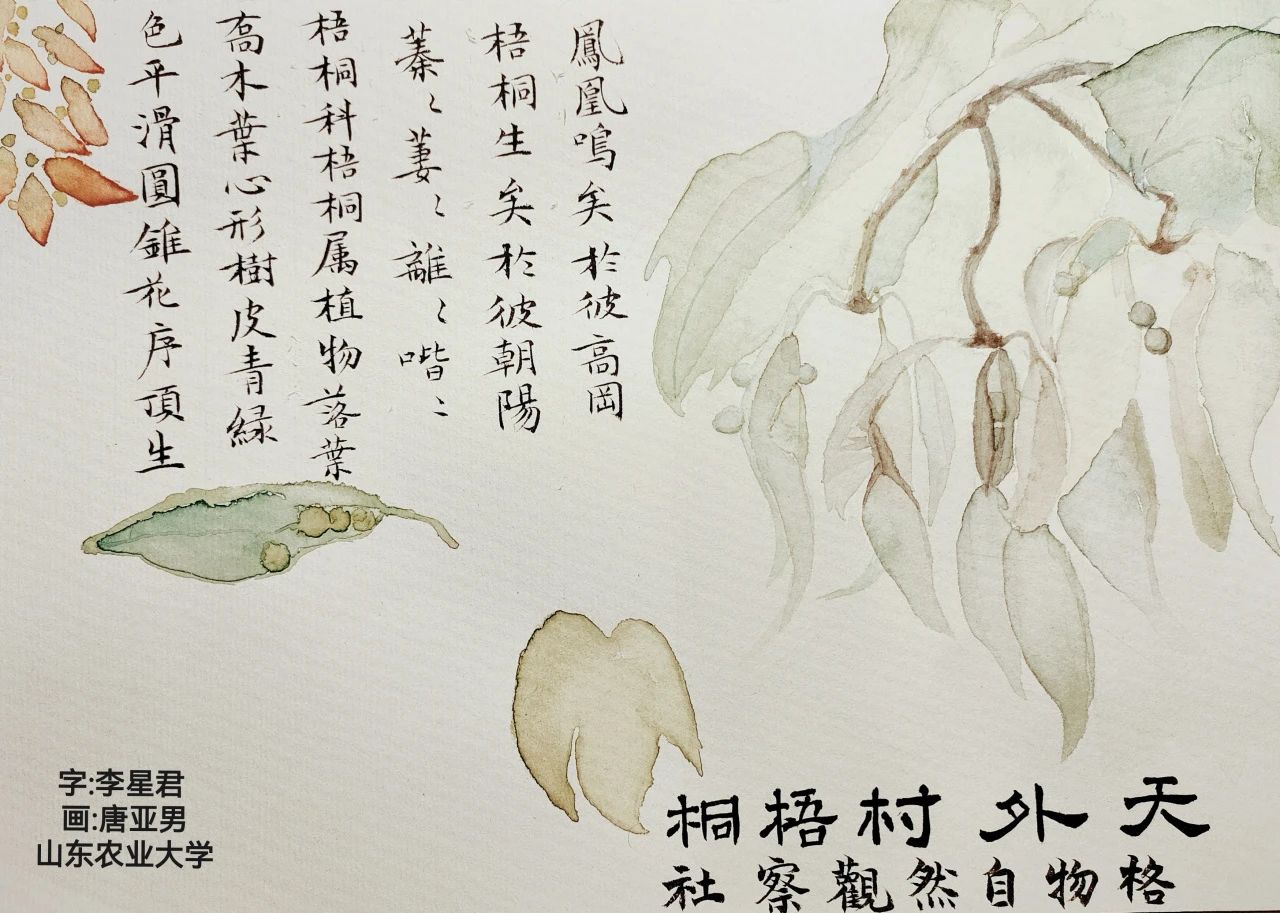 鳳凰鳴矣於彼高岡
梧桐生矣於彼朝陽
蓁〻萋〻雝〻喈〻
梧桐科梧桐属植物落葉
高木葉心形樹皮青緑
色平滑圓錐花序頂生
天外村梧桐
格物自然觀察社
字:李星君
画:唐亚男
山东农业大学